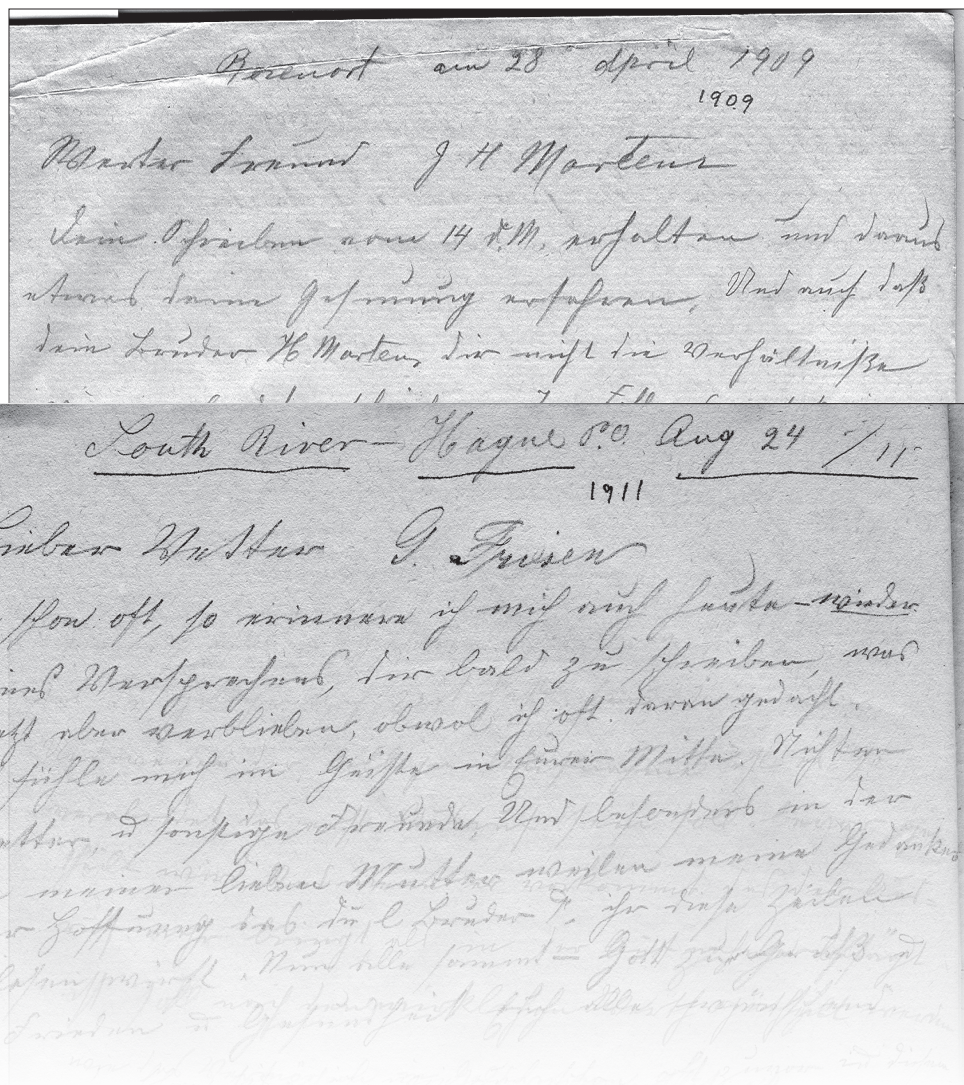 Rosenort am 28 April 1909
1909
Werter Freund J H Martens
Dein Schreiben vom 14 d.M. erhalten und daraus
etwas deine Gesinnung erfahren, Und auch daß
dein Bruder H Martens dir nicht die Verhältniße
South River – Hague P.O. Aug 24 /11
1911
Lieber Vetter G. Friesen
schon oft, so erinnere ich mich auch heute – wieder
ines Versprechens, dir bald zu schreiben, was
etzt aber verblieben, obwol ich oft daran gedacht.
fühle mich im Geiste in Eurer Mitte. Nichten
etter u sonstige Freunde Und besonders in der
meiner lieben Mutter weilen meine Gedanken
r Hoffnung das du, l Bruder P. ihr diese Zeilen
Nun alle samt Gott
Frieden u Gesundheit Euch alle